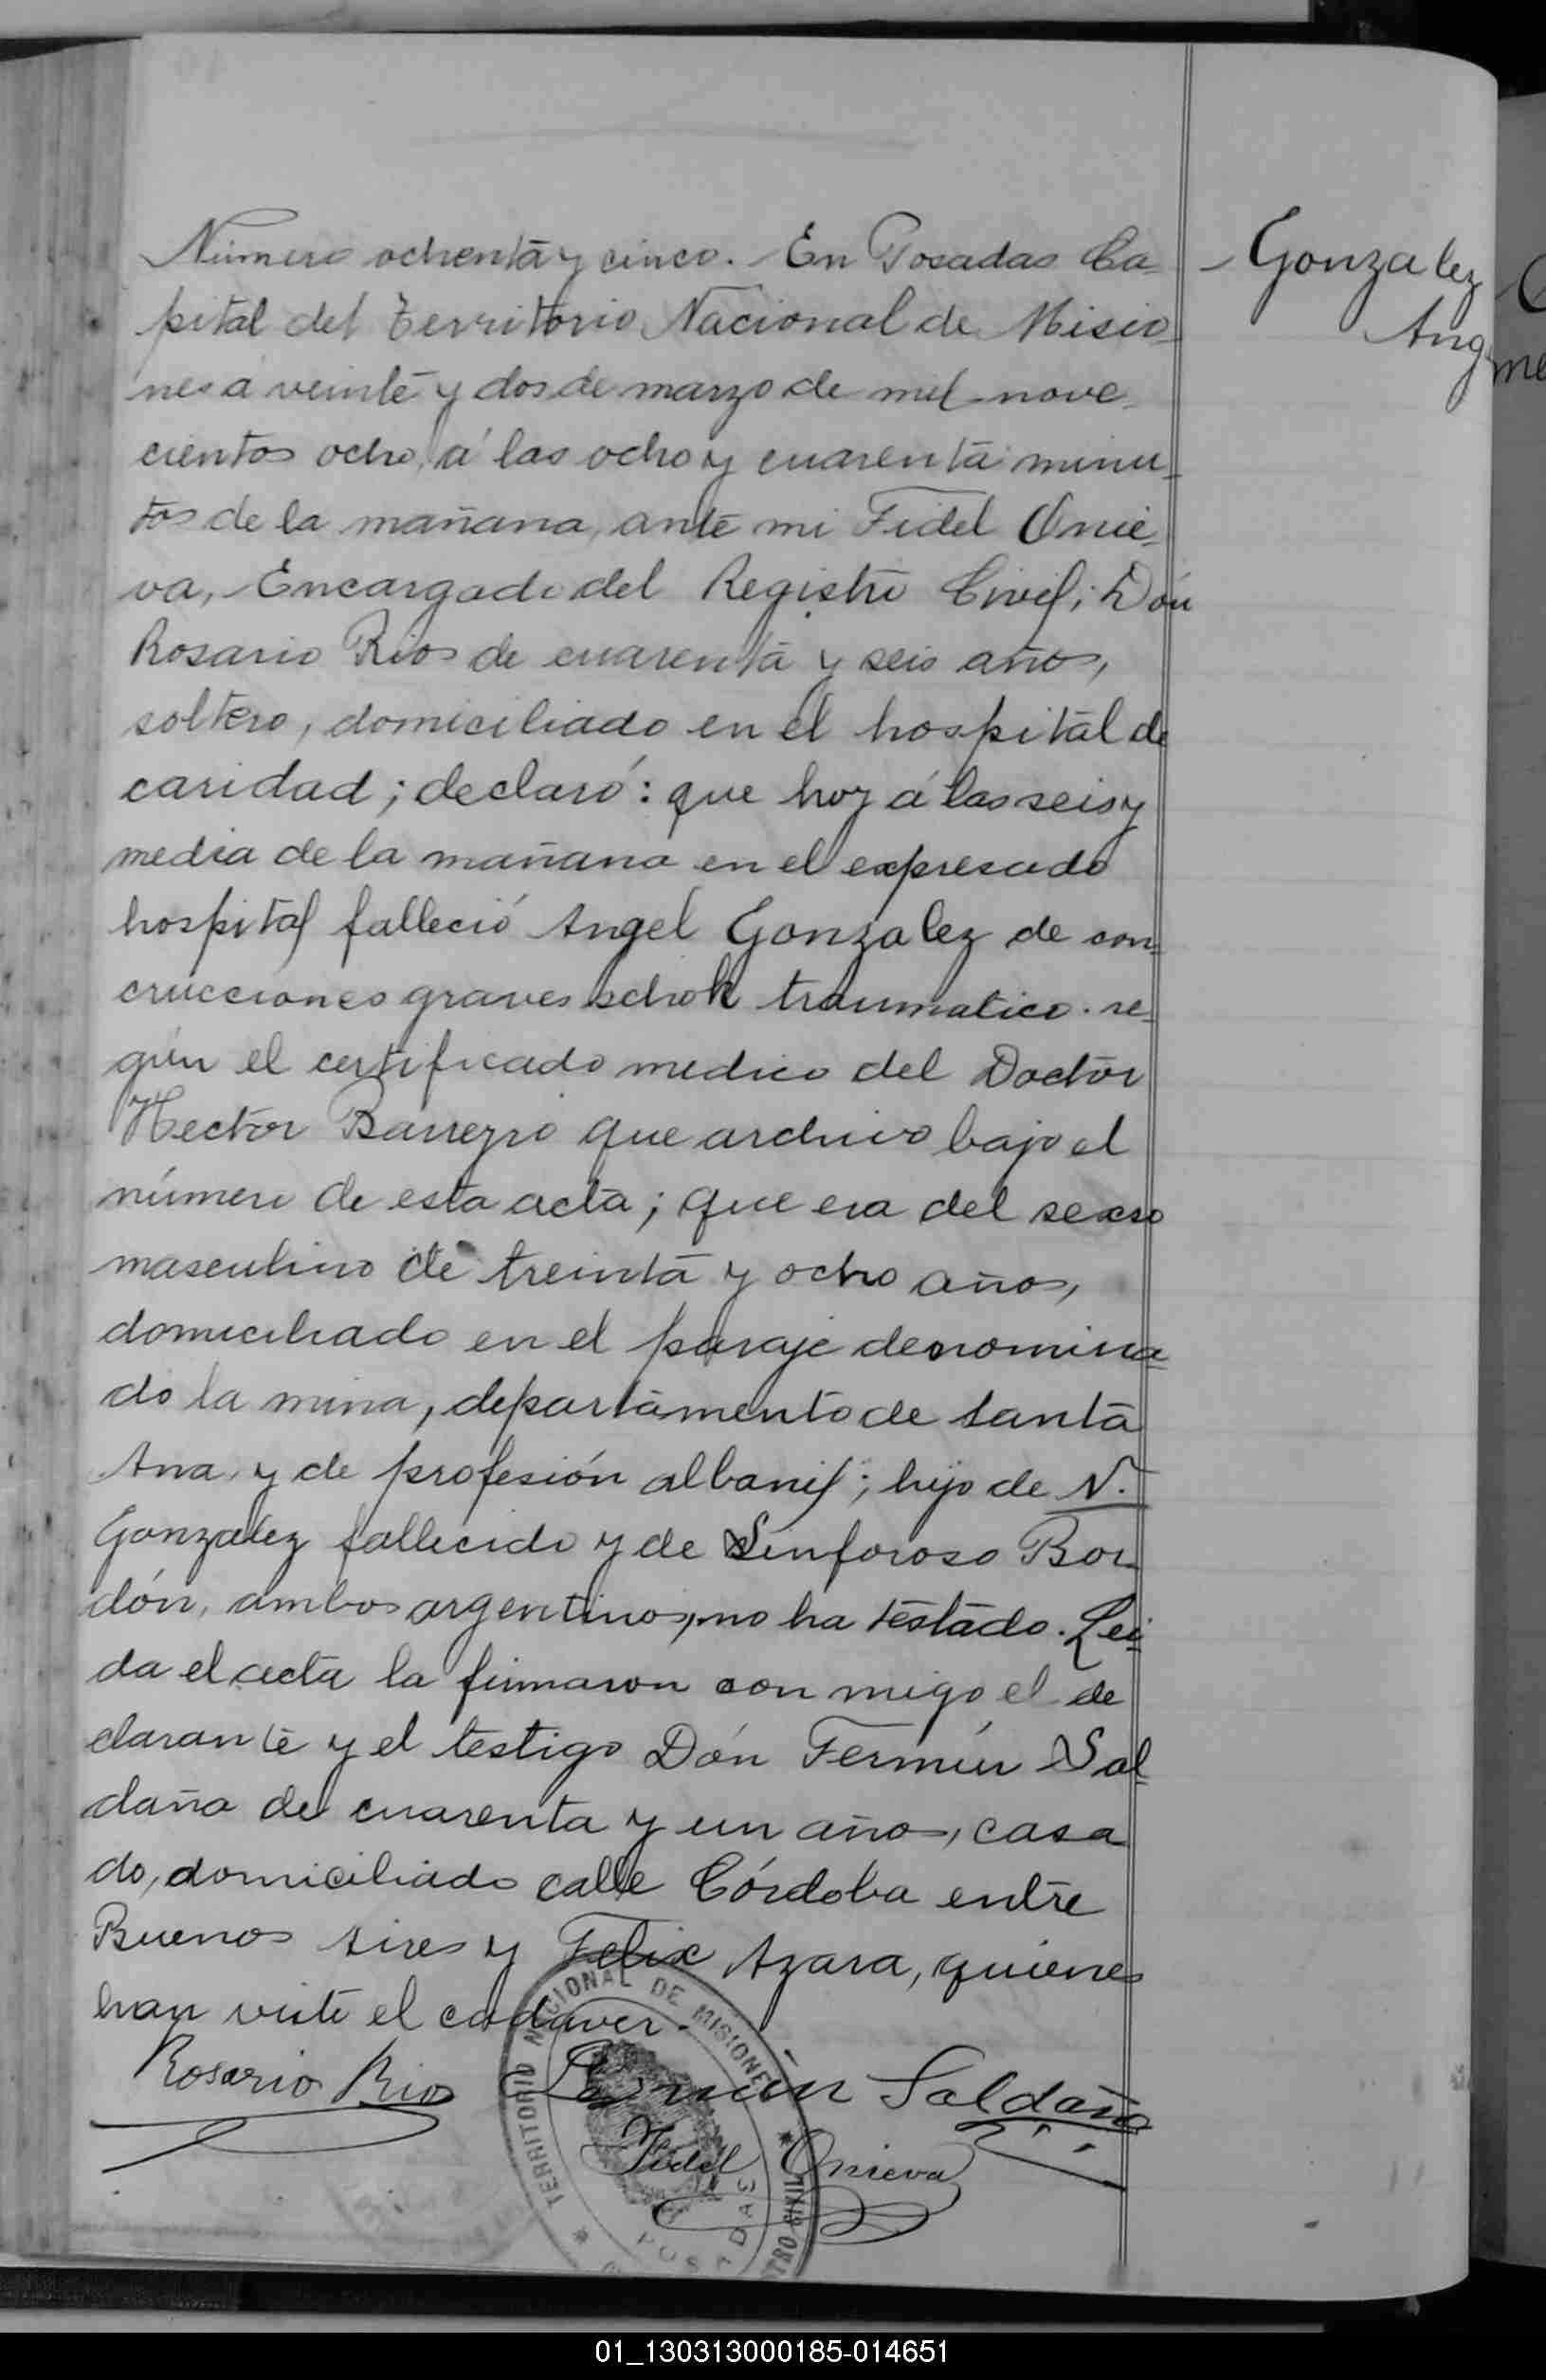 Número ochenta y cinco. En Posadas Ca-
pital del Territorio Nacional de Misio-
nes á veinte y dos de marzo de mil nove-
cientos ocho, á las ocho y cuarenta minu-
tos de la mañana, ante mi Fidel Onie-
va, Encargado del Registro Civil; Dón
Rosario Rios de cuarenta y seis años,
soltero, domiciliado en el hospital de
caridad; declaró: que hoy á las seis y
media de la mañana en el expresado
hospital falleció Angel Gonzalez de con-
crucciones graves schok traumatico. se-
gún el certificado medico del Doctor
Hector Barreyro que archivo bajo el
número de esta acta; que era del sexso
masculino de treinta y ocho años,
domiciliado en el paraje denomina-
do la mina, departamento de Santa
Ana, y de profesión albanil; hijo de N.
Gonzalez fallecido y de Sinforoso Bor-
dón, ambos argentinos, no ha testado. Lei-
da el acta la firmaron con migo el de
clarante y el testigo Dón Fermín Sal-
daña de cuarenta y un años, casa
do, domiciliado calle Córdoba entre
Buenos Aires y Felix Azara, quienes
han visto el cadaver.
Rosario Rios Fermín Saldaña
Fidel Onieva
TERRITORIO NACIONAL DE MISIONES
POSADAS
Gonzalez
Ang
01_130313000185-014651